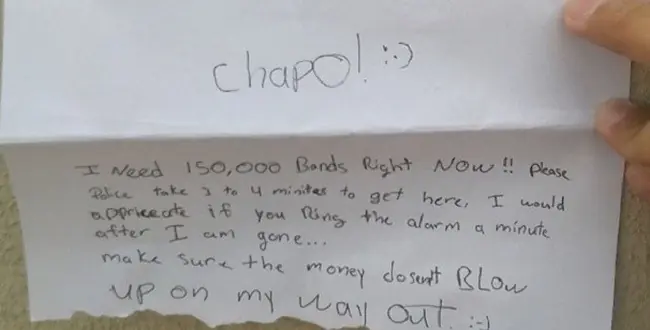 chapo! :-)
I Need 150,000 Bands Right NOW!! Please
Police take 3 to 4 minites to get here, I would
appriceate if you Ring the alarm a minute
after I am gone...
make sure the money dosent BLow
up on my way out. :-)